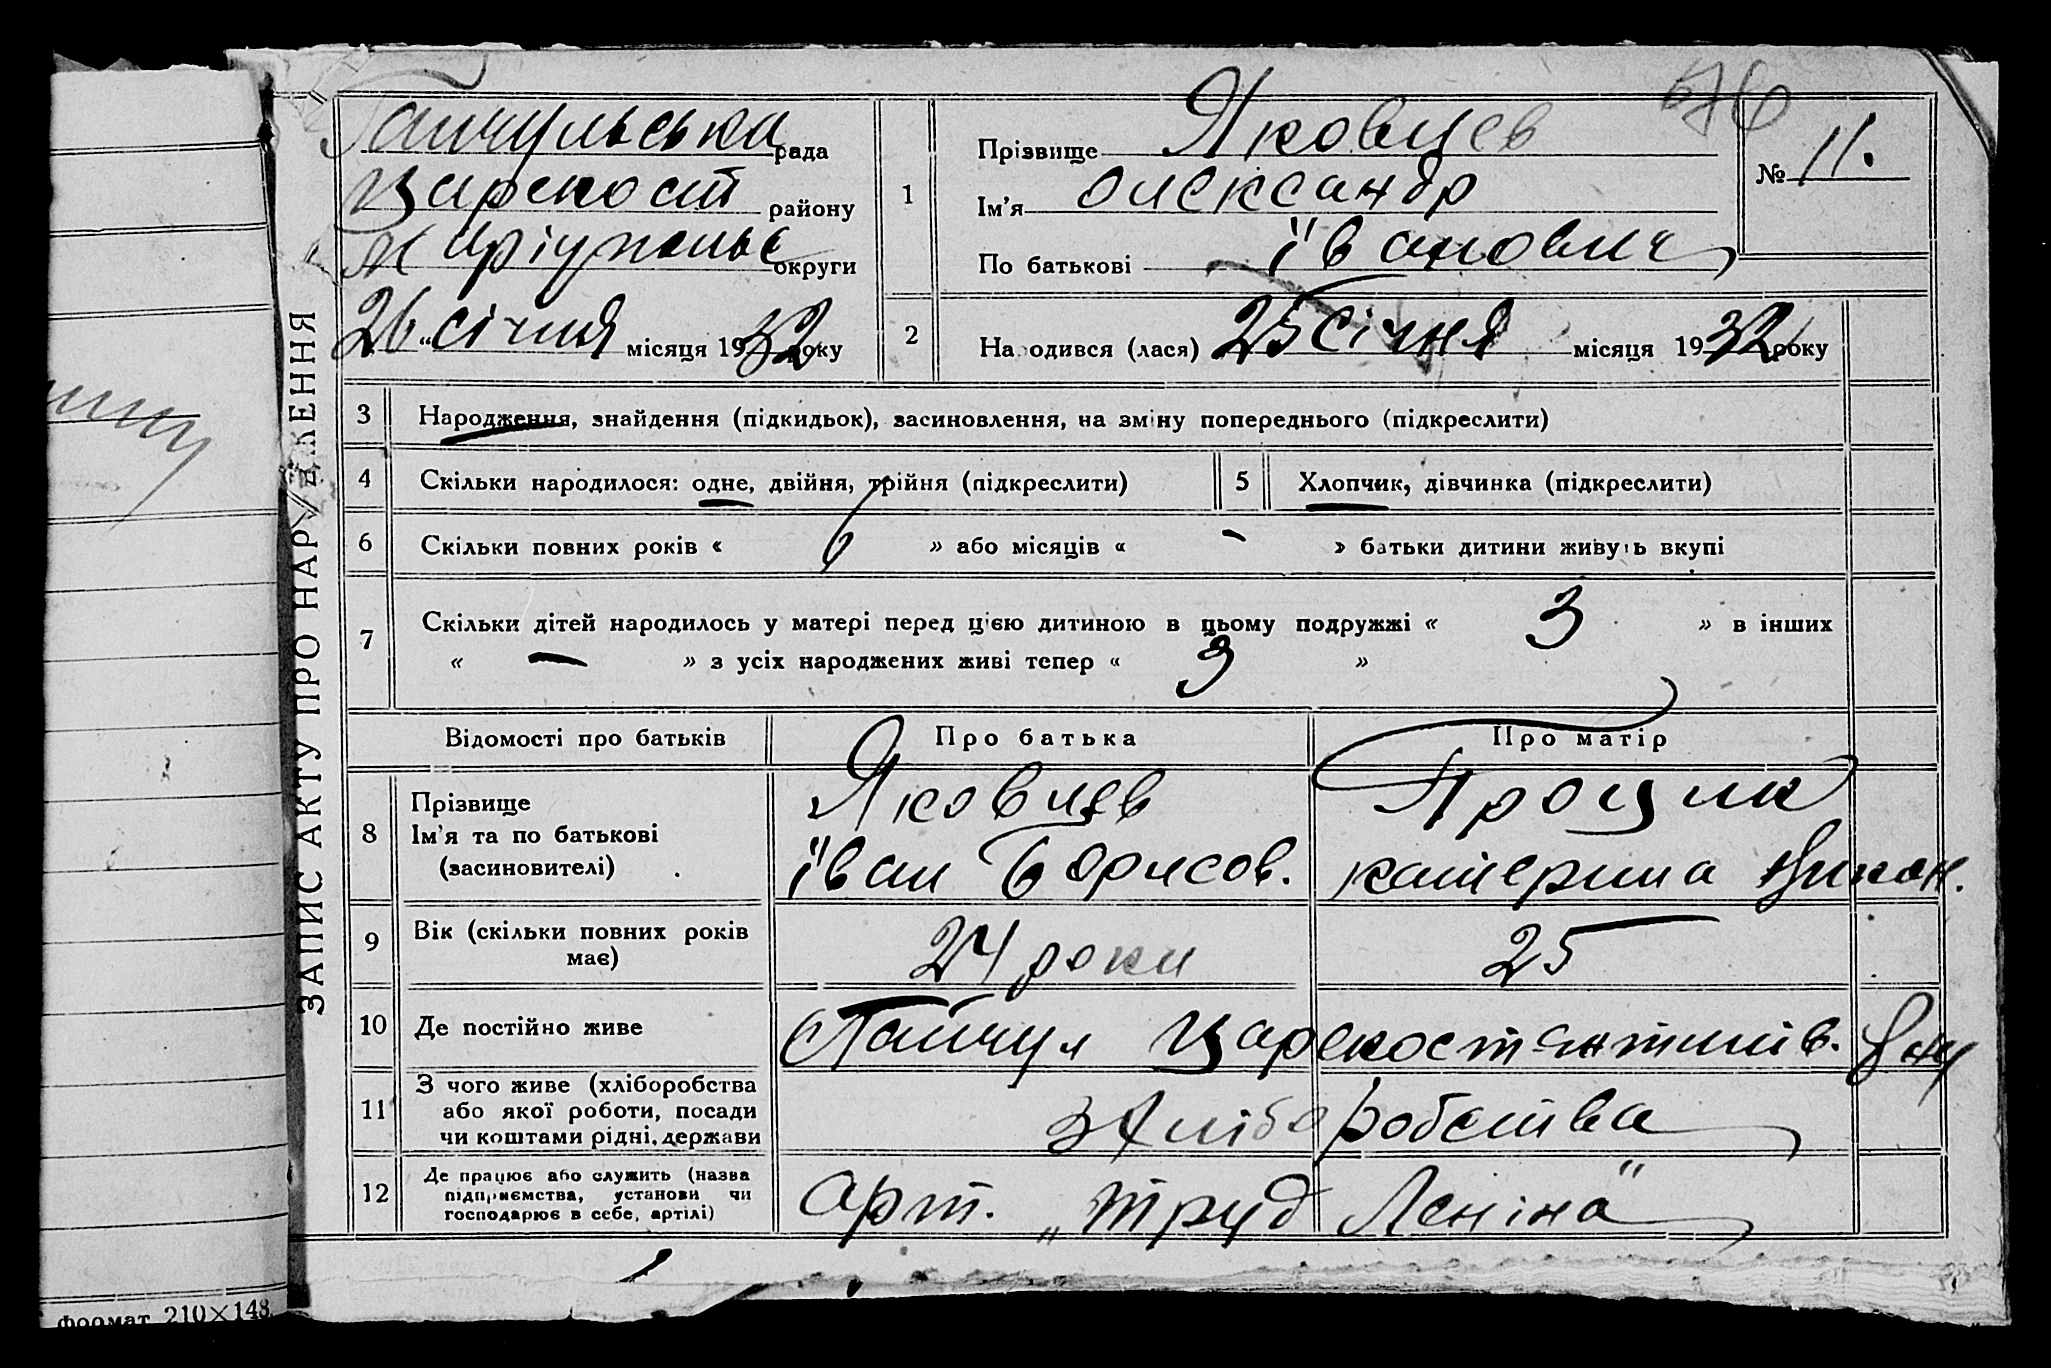 Гайчульська рада
Царекост району
Маріупольс округи
26 „ січня місяця 1932 року
1
Прізвище Яковцев
Ім'я Олександр
По батькові Іванович
670
№ 11.
2
Народився (лася) 25 січня місяця 1932 року
ЗАПИС АКТУ ПРО НАРОДЖЕННЯ
3 Народження, знайдення (підкидьок), засиновлення, на зміну попереднього (підкреслити)
4 Скільки народилося: одне, двійня, трійня (підкреслити) 5 Хлопчик, дівчинка (підкреслити)
6 Скільки повних років « 6 » або місяців « - » батьки дитини живуть вкупі
7 Скільки дітей народилось у матері перед цією дитиною в цьому подружжі « 3 » в інших
« — » з усіх народжених живі тепер « 3 »
Відомості про батьків Про батька Про матір
8 Прізвище
Ім'я та по батькові
(засиновителі)
Яковцев
Іван Борисов.
Процик
Катерина
9 Вік (скільки повних років
має)
24 роки 25
10 Де постійно живе Гайчул Царекостянтинів.
11 З чого живе (хліборобства
або якої роботи, посади
чи коштами рідні, держави
З хліборобства
12 Де працює або служить (назва
підприємства, установи чи
господарює в себе, артілі)
арт. „Труд Леніна"
формат 210×148